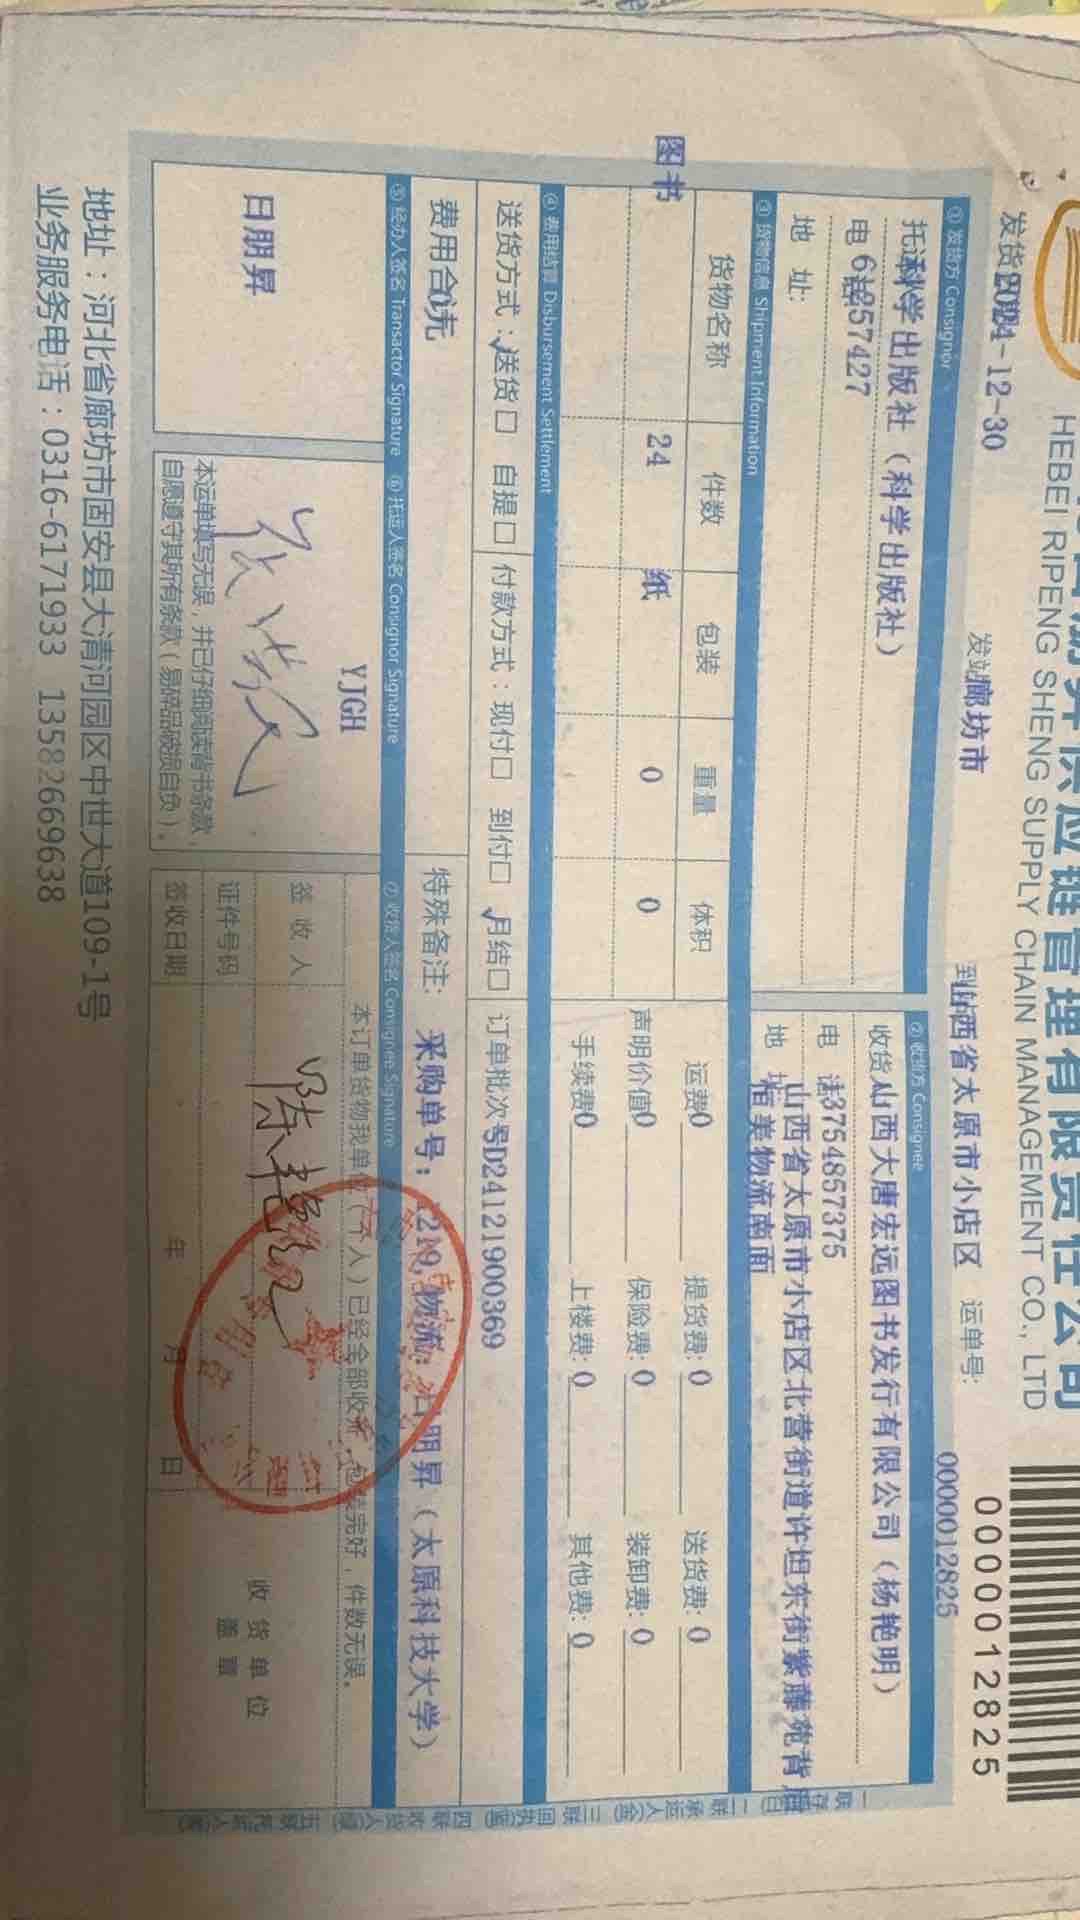 供应链管理有限责任公司
HEBEI RIPENG SHENG SUPPLY CHAIN MANAGEMENT CO., LTD
000012825
发货 2024-12-30 发站廊坊市 到站 西省太原市小店区 运单号: 000012825
① 发货方 Consignor
② 收货方 Consignee
托运 科学出版社（科学出版社）
收货人 山西大唐宏远图书发行有限公司（杨艳明）
电话 57427
电话 13754857375
地 址:
地 址 山西省太原市小店区北营街道许坦东街紫藤苑背后
恒美物流南面
③ 货物信息 Shipment Information
货物名称 件数 包装 重量 体积
图书 24 纸 0 0
运费0 提货费:0 送货费:0
声明价值0 保险费:0 装卸费:0
手续费0 上楼费:0 其他费:0
④ 费用结算 Disbursement Settlement
送货方式：✓送货□ 自提□ 付款方式：现付□ 到付□ ✓月结□ 订单批次号D24121900369
费用合 0元
特殊备注: 采购单号：1219,物流：日朋昇（太原科技大学）
⑤ 经办人签名 Transactor Signature ⑥ 托运人签名 Consignor Signature ⑦ 收货人签名 Consignee Signature
日朋昇
YJGH
本运单填写无误，并已仔细阅读背书条款，
自愿遵守其所有条款（易碎品破损自负）。
本订单货物我单位（本人）已经全部收齐，包装完好，件数无误。
签 收 人 陈艳
证件号码
签收日期 年 月 日
收 货 单 位
盖 章
地址：河北省廊坊市固安县大清河园区中世大道109-1号
业务服务电话：0316-6171933 13582669638